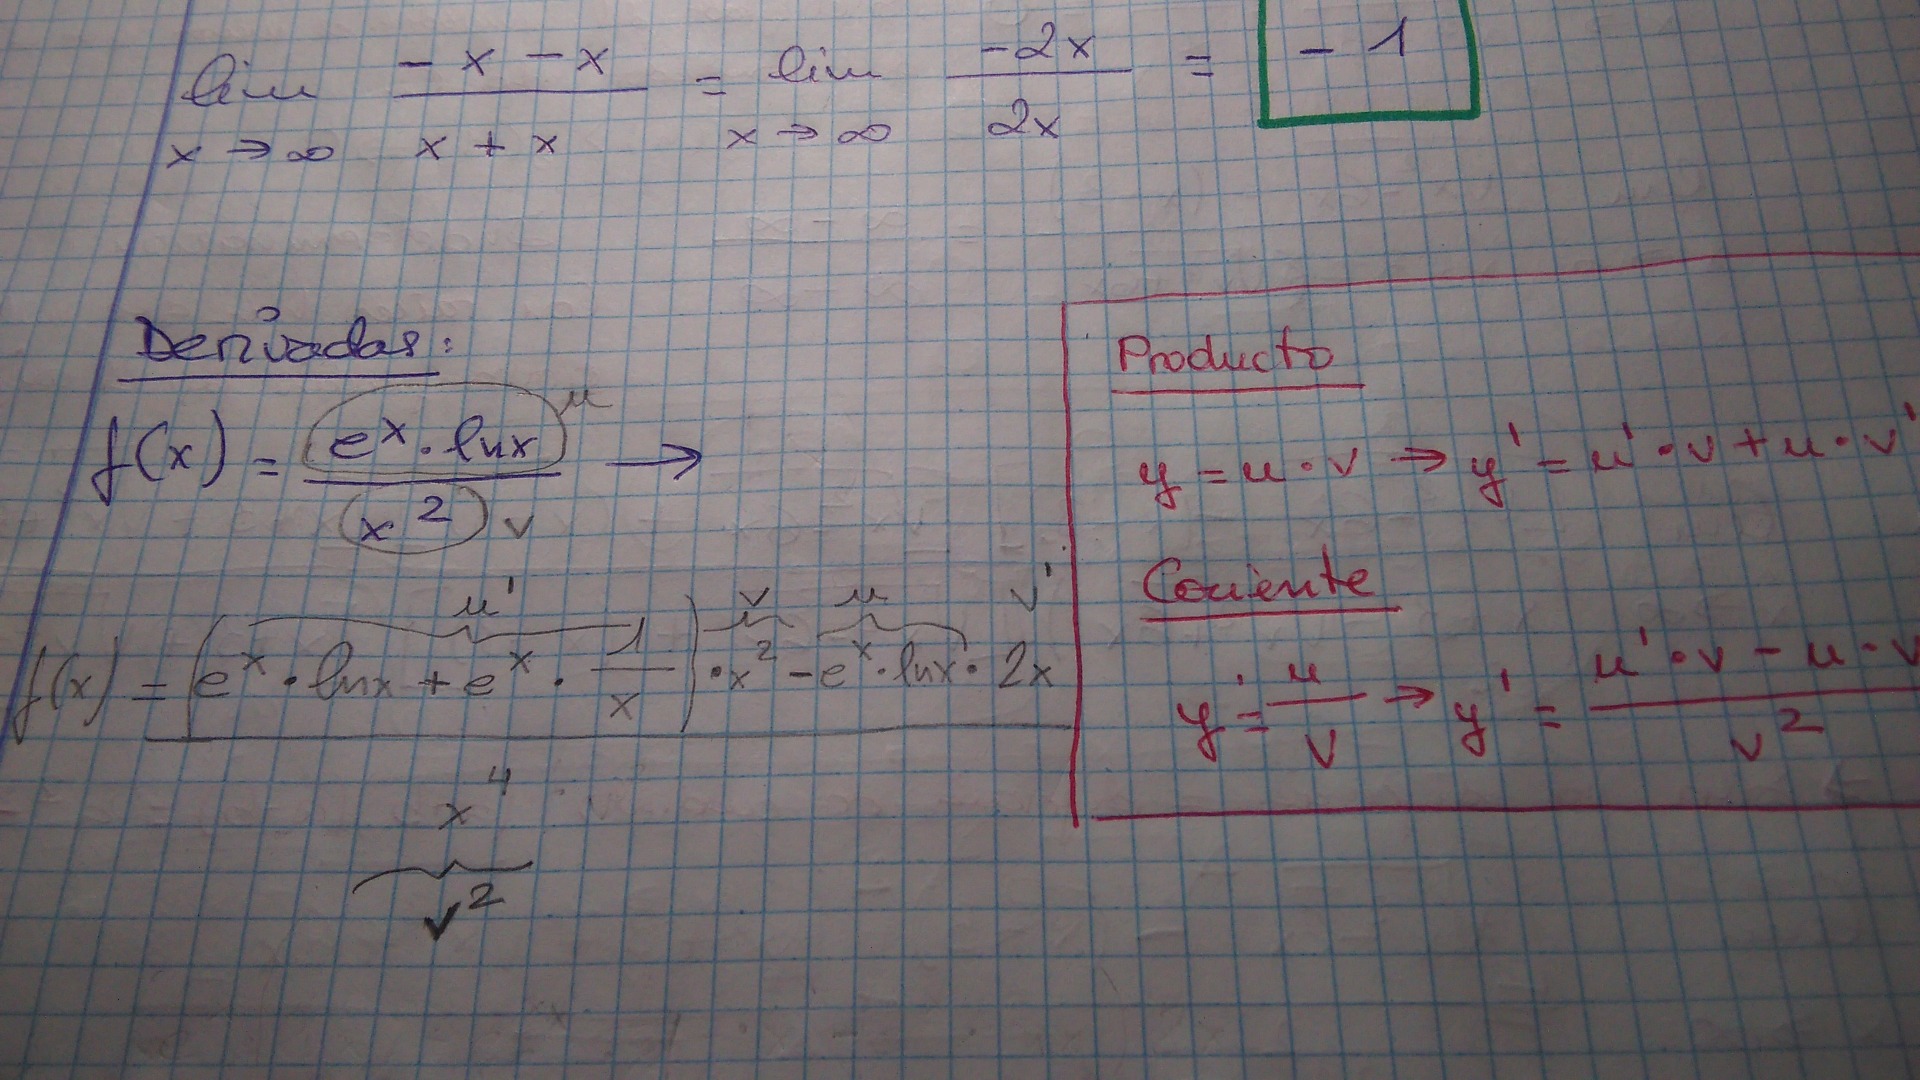 lim -x-x/x+x = lim -2x/2x = -1
x→∞ x→∞
Derivadas:
f(x) = e^x · lnx / x^2 →
u
v
u' v u v'
f(x) = (e^x · lnx + e^x · 1/x) · x^2 - e^x · lnx · 2x
x^4
v^2
Producto
y = u · v → y' = u' · v + u · v'
Cociente
y' = u/v → y' = u' · v - u · v / v^2